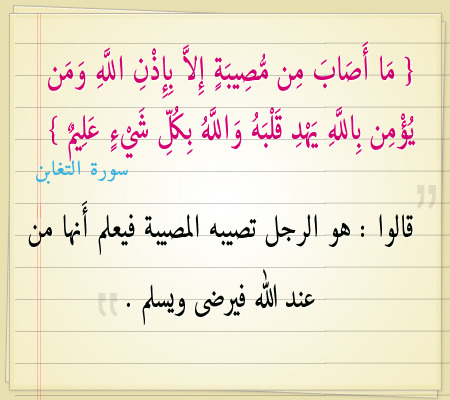 { مَا أَصَابَ مِن مُّصِيبَةٍ إِلاَّ بِإِذْنِ اللَّهِ وَمَن
يُؤْمِن بِاللَّهِ يَهْدِ قَلْبَهُ وَاللَّهُ بِكُلِّ شَيْءٍ عَلِيمٌ }
سورة التغابن
قالوا : هو الرجل تصيبه المصيبة فيعلم أنها من
عند الله فيرضى ويسلم .